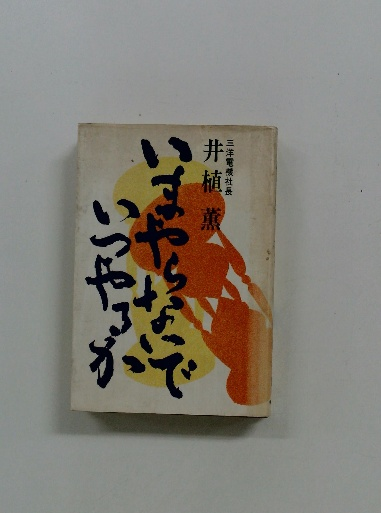 三洋電機社長
井植 薫
いまやらないで
いつやるか